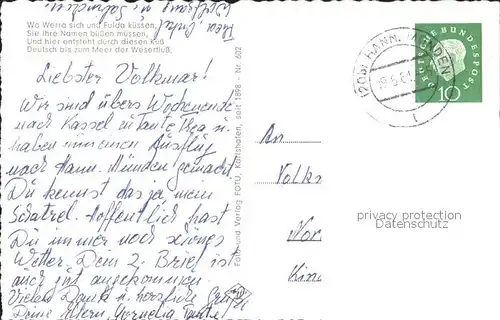 Wo Werra sich und Fulda küssen,
Sie ihre Namen büßen müssen,
Und hier entsteht durch diesen Kuß
Deutsch bis zum Meer der Weserfluß.
Liebster Volkmar!
Wir sind übers Wochenende
nach Kassel zu Tante Thea u.
haben nun einen Ausflug
nach Hann. Münden gemacht.
Du kennst das ja, mein
Schatzel. Hoffentlich hast
Du immer noch schönes
Wetter. Dein 2. Brief ist
auch gut angekommen.
Vielen Dank u. herzliche Grüße
Deine Eltern, Cornelia Tante
Thea
Foto und Verlag FOTU, Karlshafen, seit 1898 - Nr. 602
(20b) HANN. MÜNDEN
DEUTSCHE BUNDESPOST
10
An
Volks
Nor
Kin
privacy protection